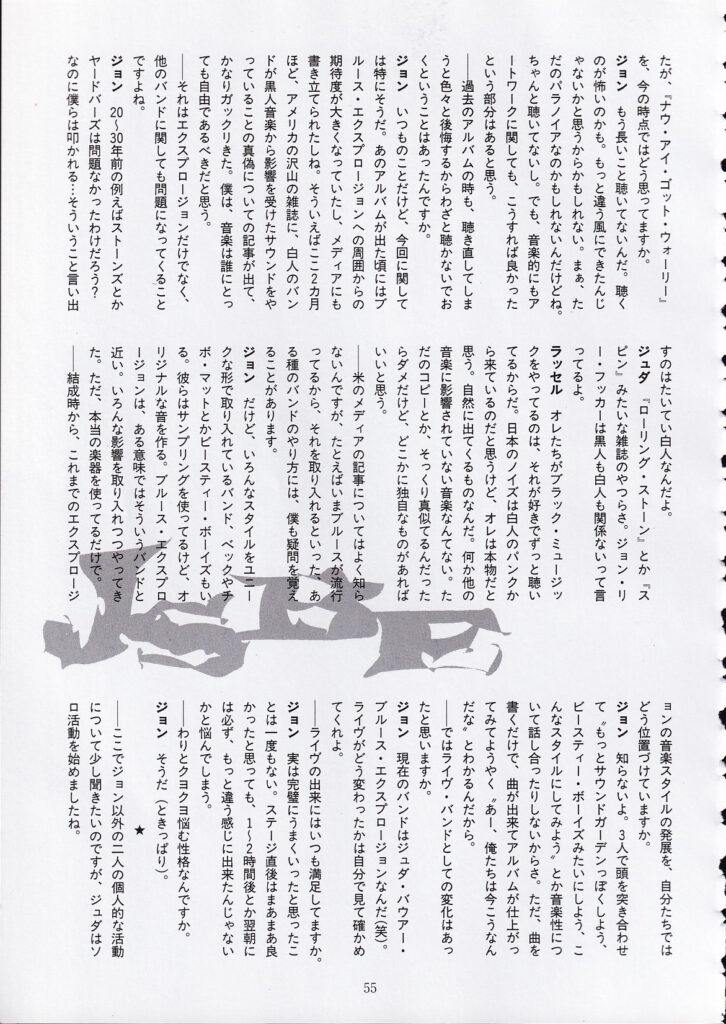 たが、『ナウ・アイ・ゴット・ウォーリー』
を、今の時点ではどう思ってますか。
ジョン　もう長いこと聴いてないんだ。聴く
のが怖いのかも。もっと違う風にできたんじ
ゃないかと思うからかもしれない。まぁ、た
だのパラノイアなのかもしれないんだけどね。
ちゃんと聴いてないし。でも、音楽的にもア
ートワークに関しても、こうすれば良かった
という部分はあると思う。
──過去のアルバムの時も、聴き直してしま
うと色々と後悔するからわざと聴かないでお
くということはあったんですか。
ジョン　いつものことだけど、今回に関して
は特にそうだ。あのアルバムが出た頃にはブ
ルース・エクスプロージョンへの周囲からの
期待度が大きくなっていたし、メディアにも
書き立てられたしね。そういえばここ2カ月
ほど、アメリカの沢山の雑誌に、白人のバン
ドが黒人音楽から影響を受けたサウンドをや
っていることの真偽についての記事が出て、
かなりガックリきた。僕は、音楽は誰にとっ
ても自由であるべきだと思う。
──それはエクスプロージョンだけでなく、
他のバンドに関しても問題になってくること
ですよね。
ジョン　20〜30年前の例えばストーンズとか
ヤードバーズは問題なかったわけだろう？
なのに僕らは叩かれる…そういうこと言い出
すのはたいてい白人なんだよ。
ジュダ　『ローリング・ストーン』とか『ス
ピン』みたいな雑誌のやつらさ。ジョン・リ
ー・フッカーは黒人も白人も関係ないって言
ってるよ。
ラッセル　オレたちがブラック・ミュージッ
クをやってるのは、それが好きでずっと聴い
てるからだ。日本のノイズは白人のパンクか
ら来ているのだと思うけど、オレは本物だと
思う。自然に出てくるものなんだ。何か他の
音楽に影響されていない音楽なんてない。た
だのコピーとか、そっくり真似てるんだった
らダメだけど、どこかに独自なものがあれば
いいと思う。
──米のメディアの記事についてはよく知ら
ないんですが、たとえばいまブルースが流行
ってるから、それを取り入れるといった、あ
る種のバンドのやり方には、僕も疑問を覚え
ることがあります。
ジョン　だけど、いろんなスタイルをユニー
クな形で取り入れているバンド、ベックやチ
ボ・マットとかビースティー・ボーイズもい
る。彼らはサンプリングを使ってるけど、オ
リジナルな音を作る。ブルース・エクスプロ
ージョンは、ある意味ではそういうバンドと
近い。いろんな影響を取り入れつつやってき
た。ただ、本当の楽器を使ってるだけで。
──結成時から、これまでのエクスプロージ
ョンの音楽スタイルの発展を、自分たちでは
どう位置づけていますか。
ジョン　知らないよ。3人で頭を突き合わせ
て〝もっとサウンドガーデンっぽくしよう、
ビースティー・ボーイズみたいにしよう、こ
んなスタイルにしてみよう〟とか音楽性につ
いて話し合ったりしないからさ。ただ、曲を
書くだけで、曲が出来てアルバムが仕上がっ
てみてようやく〝あー、俺たちは今こうなん
だな〟とわかるんだから。
──ではライヴ・バンドとしての変化はあっ
たと思いますか。
ジョン　現在のバンドはジュダ・バウアー・
ブルース・エクスプロージョンなんだ(笑)。
ライヴがどう変わったかは自分で見て確かめ
てくれよ。
──ライヴの出来にはいつも満足してますか。
ジョン　実は完璧にうまくいったと思ったこ
とは一度もない。ステージ直後はまあまあ良
かったと思っても、1〜2時間後とか翌朝に
は必ず、もっと違う感じに出来たんじゃない
かと悩んでしまう。
──わりとクヨクヨ悩む性格なんですか。
ジョン　そうだ(ときっぱり)。
★
──ここでジョン以外の二人の個人的な活動
について少し聞きたいのですが、ジュダはソ
ロ活動を始めましたね。
JSBE
55